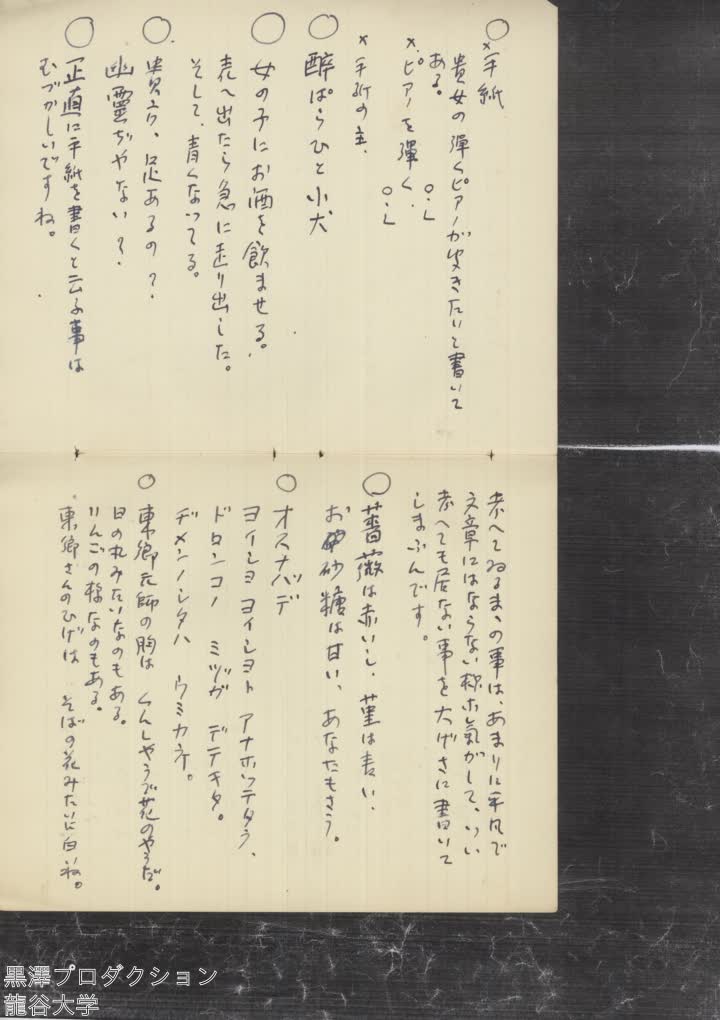 ○
×手紙
貴女の彈くピアノが聞きたいと書いて
ある。 O.L
×ピアノを彈く。 O.L
×手紙の主、
○
醉ぱらひと小犬
○
女の子にお酒を飲ませる。
表へ出たら急に走り出した。
そして、青くなつてる。
○
貴方、足あるの?
幽靈ぢやない?
○
正直に手紙を書くと云ふ事は
むづかしいですね。
考へてゐるまゝの事は、あまりに平凡で
文章にはならない樣な氣がして、つい
考へても居ない事を大げさに書いて
しまふんです。
○
薔薇は赤いし、菫は青い、
お砂糖は甘い、あなたもさう。
○
オスナバデ
ヨイシヨ ヨイシヨト アナホツテタラ、
ドロンコノ ミヅガ デテキタ。
ヂメンノシタハ ウミカネ。
○
東郷元師の胸は くんしやうで花のやうだ。
日の丸みたいなのもある。
りんごの樣なのもある。
東郷さんのひげは そばの花みたいに白いね。
黒澤プロダクション
龍谷大学